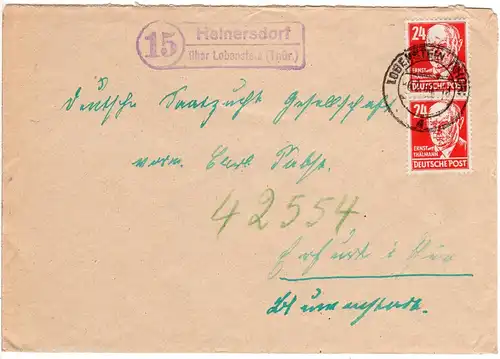 15
Heinersdorf
über Lobenstein (Thür.)
24
ERNST THÄLMANN
DEUTSCHE POST
24
ERNST THÄLMANN
DEUTSCHE POST
LOBENSTEIN (THÜR)
Deutsche Saatzucht Gesellschaft
vorm. Carl
42554
Erfurt i Thür
Blumenstadt.